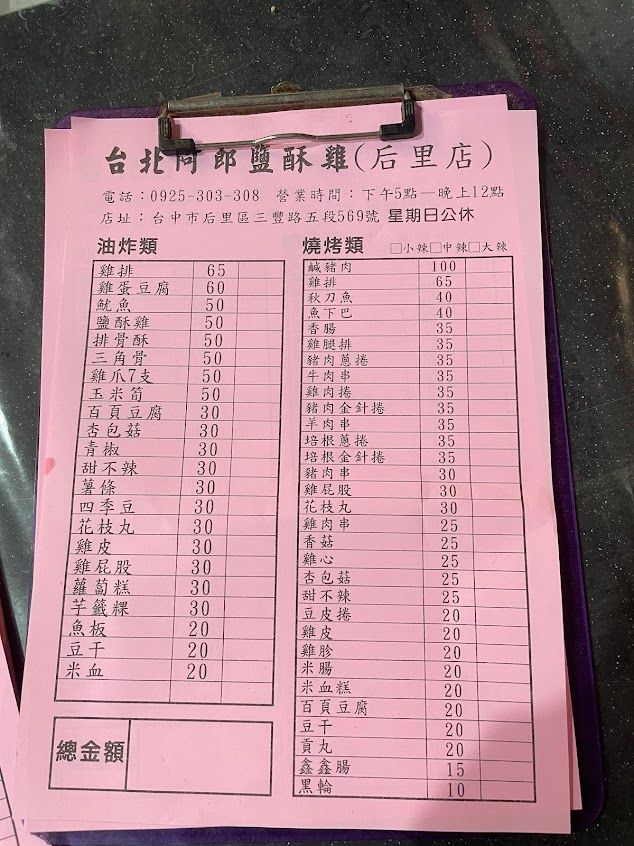 台北阿郎鹽酥雞(后里店)
電話：0925-303-308 營業時間：下午5點—晚上12點
店址：台中市后里區三豐路五段569號 星期日公休
油炸類
雞排 65
雞蛋豆腐 60
魷魚 50
鹽酥雞 50
排骨酥 50
三角骨 50
雞爪7支 50
玉米筍 50
百頁豆腐 30
杏包菇 30
青椒 30
甜不辣 30
薯條 30
四季豆 30
花枝丸 30
雞皮 30
雞屁股 30
蘿蔔糕 30
芋籤粿 30
魚板 20
豆干 20
米血 20
總金額
燒烤類 □小辣□中辣□大辣
鹹豬肉 100
雞排 65
秋刀魚 40
魚下巴 40
香腸 35
雞腿排 35
豬肉蔥捲 35
牛肉串 35
雞肉捲 35
豬肉金針捲 35
羊肉串 35
培根蔥捲 35
培根金針捲 35
豬肉串 30
雞屁股 30
花枝丸 30
雞肉串 25
香菇 25
雞心 25
杏包菇 25
甜不辣 25
豆皮捲 20
雞皮 20
雞胗 20
米腸 20
米血糕 20
百頁豆腐 20
豆干 20
貢丸 20
鑫鑫腸 15
黑輪 10